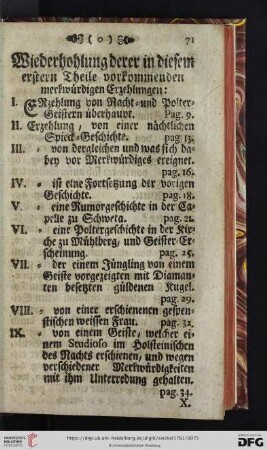 ( o ) 71
Wiederhohlung derer in diesem
erstern Theile vorkommenden
merkwürdigen Erzehlungen:
I. ERzehlung von Nacht- und Polter-
Geistern überhaupt. Pag. 9.
II. Erzehlung, von einer nächtlichen
Spieck-Geschichte. pag 13.
III. = von dergleichen und was sich da-
bey vor Merkwürdiges ereignet.
pag. 16.
IV. = ist eine Fortsetzung der vorigen
Geschichte. pag. 18.
V. = eine Rumorgeschichte in der Ca-
pelle zu Schweta. pag. 21.
VI. = eine Poltergeschichte in der Kir-
che zu Mühlberg, und Geister Er-
scheinung. pag. 25.
VII. = der einem Jüngling von einem
Geiste vorgezeigten mit Diaman-
ten besetzten güldenen Kugel.
pag. 29.
VIII. = von einer erschienenen gespen-
stischen weissen Frau. pag. 32.
IX. = von einem Geiste, welcher ei-
nem Studioso im Holsteinischen
des Nachts erschienen, und wegen
verschiedener Merkwürdigkeiten
mit ihm Unterredung gehalten.
pag. 34.
X.
UNIVERSITÄTS-
BIBLIOTHEK
HEIDELBERG
https://digi.ub.uni-heidelberg.de/diglit/wiechel1761/0073
© Universitätsbibliothek Heidelberg
gefördert durch die
DFG